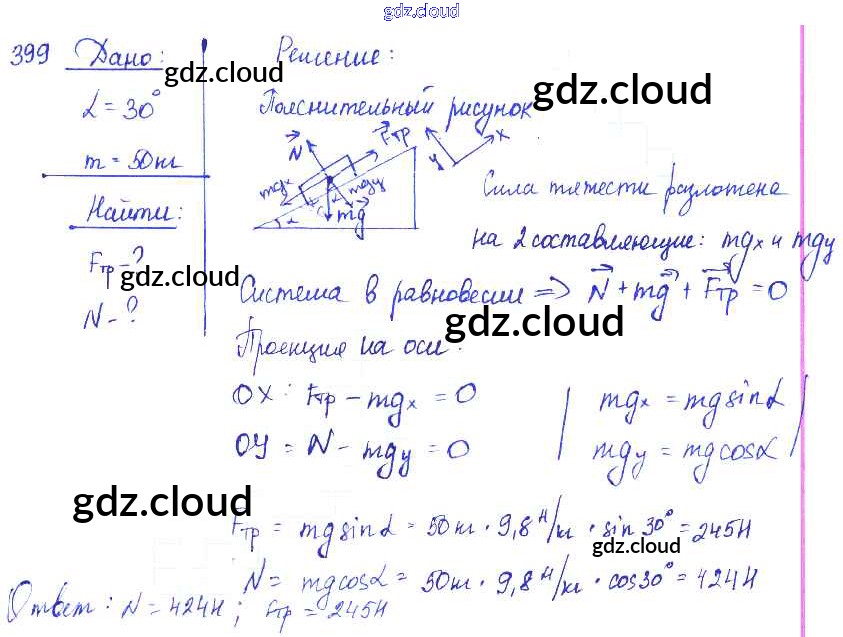 gdz.cloud
399 Дано:
α = 30°
m = 50кг
Найти:
Fтр - ?
N - ?
gdz.cloud
gdz.cloud
Решение:
gdz.cloud
Пояснительный рисунок
N Fтр x y
mgx mgy
α α mg
Сила тяжести разложена
на 2 составляющие: mgx и mgy
Система в равновесии => N + mg + Fтр = 0
gdz.cloud
Проекция на оси:
OX: Fтр - mgx = 0 | mgx = mgsinα
OY = N - mgy = 0 | mgy = mgcosα
gdz.cloud
Fтр = mgsinα = 50кг · 9,8 Н/кг · sin 30° = 245Н
gdz.cloud
N = mgcosα = 50кг · 9,8 Н/кг · cos30° = 424Н
Ответ: N = 424Н; Fтр = 245Н